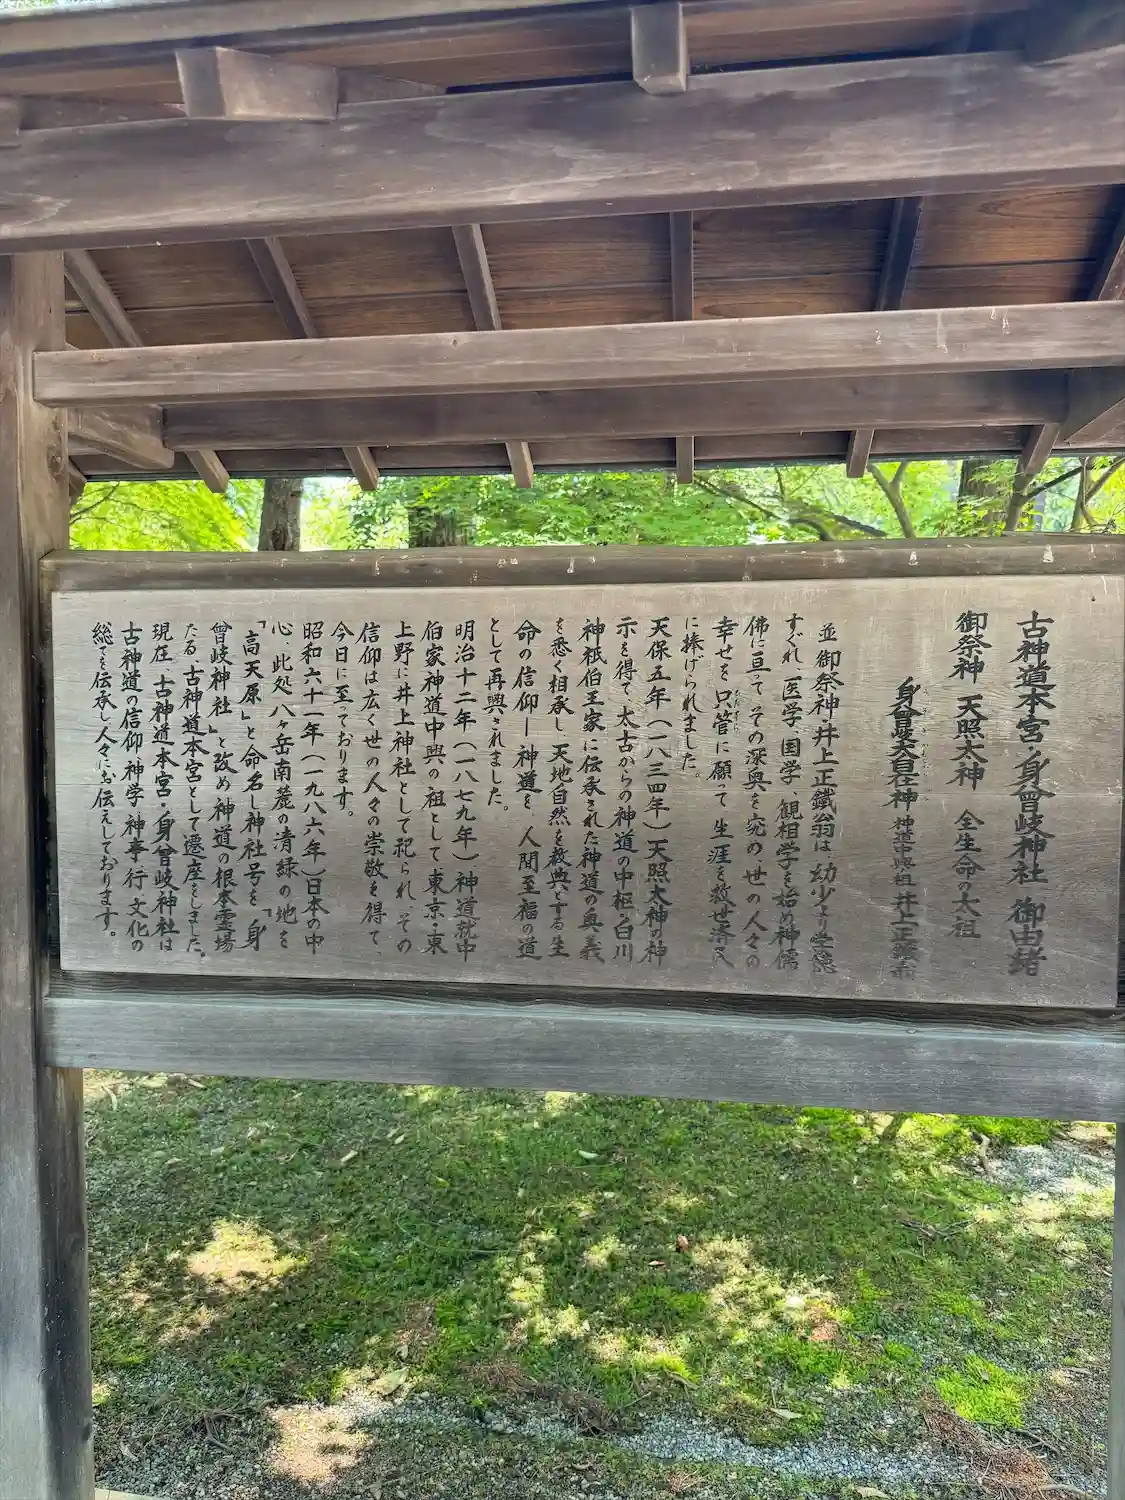 古神道本宮・身曾岐神社 御由緒
御祭神 天照太神 全生命の太祖
身曾岐大自在神 神道中興の祖 井上正鐵翁
並御祭神・井上正鐵翁は幼少より学徳
すぐれ、医学、国学、観相学を始め神儒
佛に亘ってその深奥を究め、世の人々の
幸せを只管に願って生涯を救世済及
に捧げられました。
天保五年(一八三四年)天照太神の神
示を得て、太古からの神道の中枢・白川
神祇伯王家に伝承された神道の奥義
を悉く相承し、天地自然を教典とする生
命の信仰―神道を、人間至福の道
として再興されました。
明治十二年(一八七九年)神道就中
伯家神道中興の祖として東京・東
上野に井上神社として祀られ、その
信仰は広く世の人々の崇敬を得て
今日に至っております。
昭和六十一年(一九八六年)日本の中
心、此処八ヶ岳南麓の清緑の地を
「高天原」と命名し神社号を「身
曾岐神社」と改め神道の根本霊場
たる、古神道本宮として遷座をしました。
現在、古神道本宮・身曾岐神社は
古神道の信仰・神学・神事・行・文化の
総てを伝承し人々にお伝えしております。